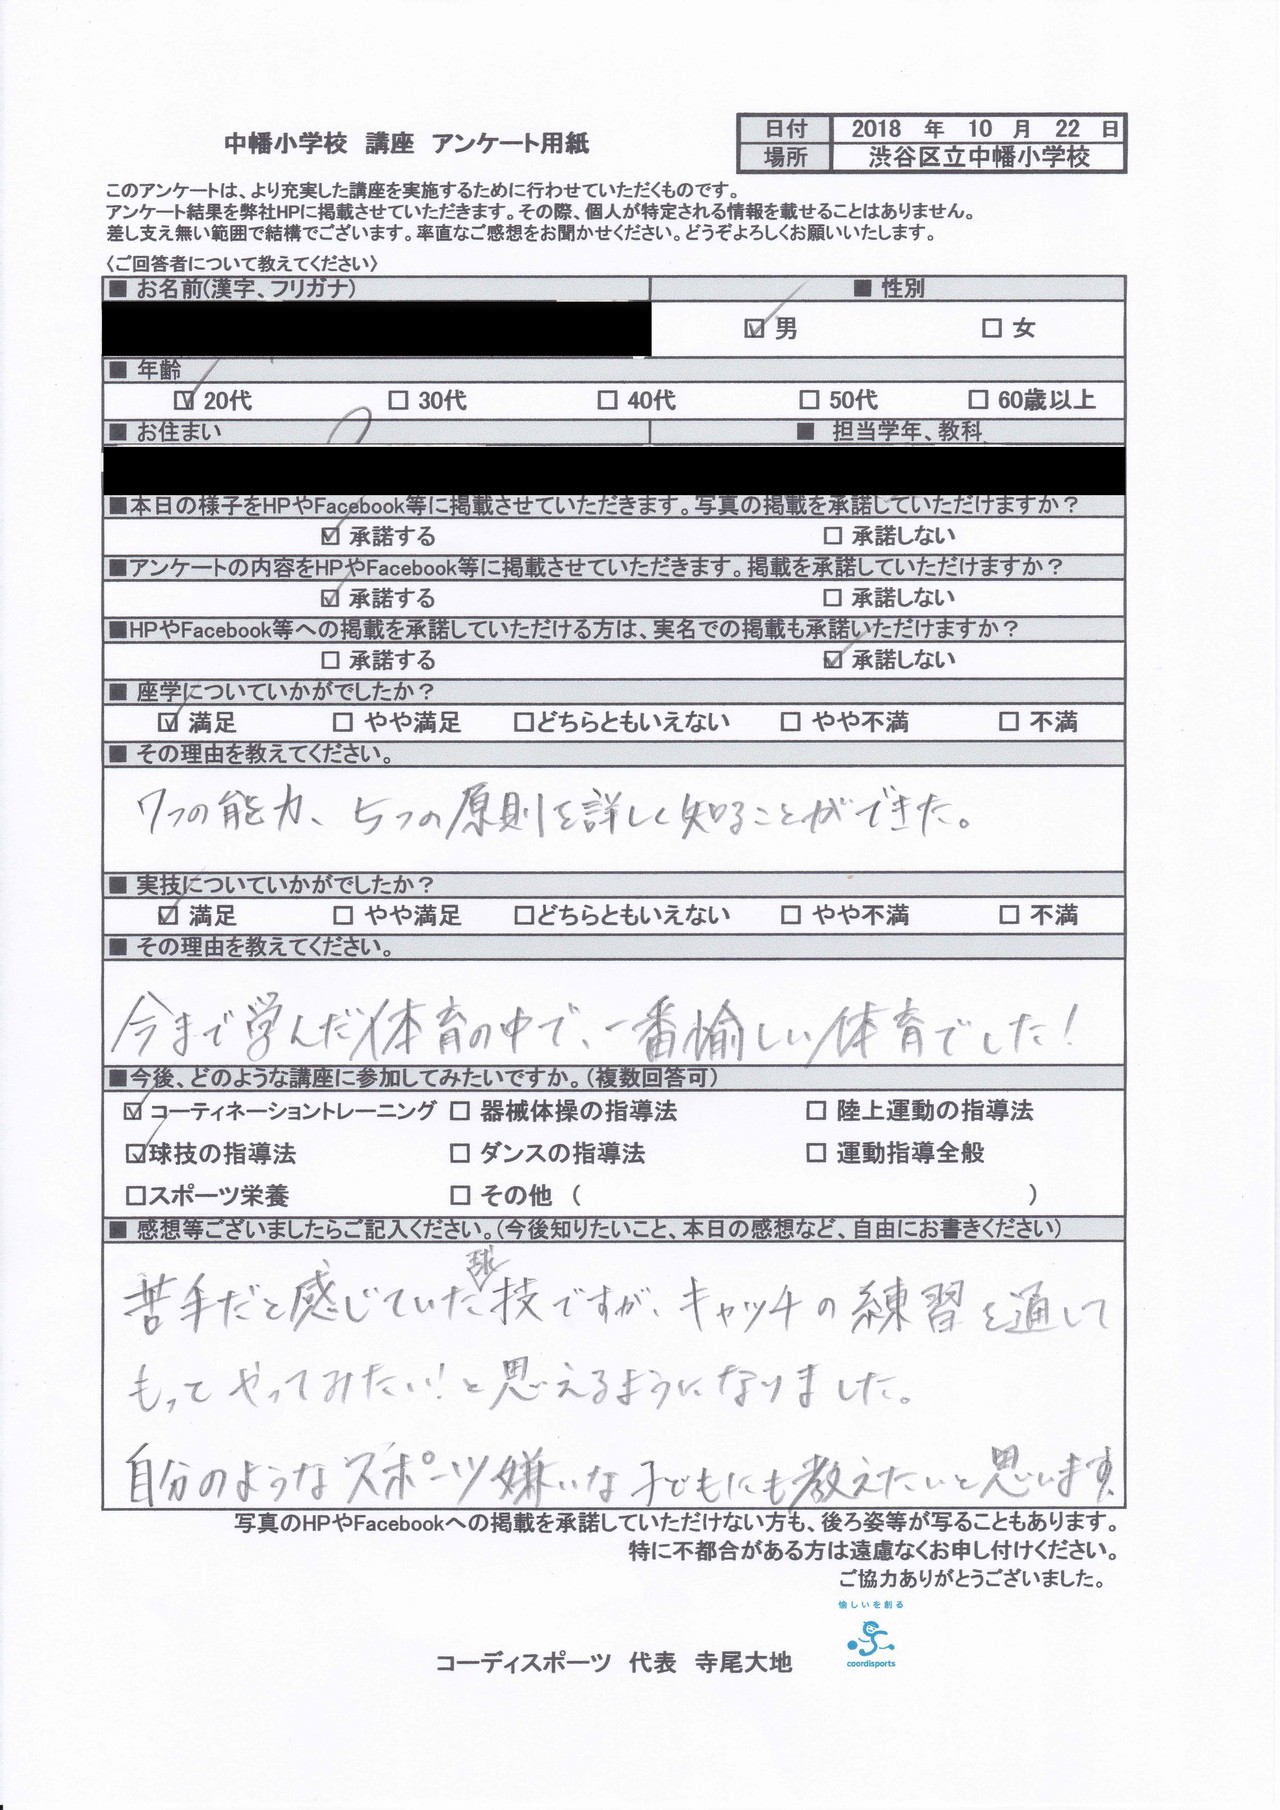 中幡小学校 講座 アンケート用紙
日付 2018 年 10 月 22 日
場所 渋谷区立中幡小学校
このアンケートは、より充実した講座を実施するために行わせていただくものです。
アンケート結果を弊社HPに掲載させていただきます。その際、個人が特定される情報を載せることはありません。
差し支え無い範囲で結構でございます。率直なご感想をお聞かせください。どうぞよろしくお願いいたします。
〈ご回答者について教えてください〉
■ お名前(漢字、フリガナ) ■ 性別
☑ 男 □ 女
■ 年齢
☑ 20代 □ 30代 □ 40代 □ 50代 □ 60歳以上
■ お住まい ■ 担当学年、教科
■本日の様子をHPやFacebook等に掲載させていただきます。写真の掲載を承諾していただけますか？
☑ 承諾する □ 承諾しない
■アンケートの内容をHPやFacebook等に掲載させていただきます。掲載を承諾していただけますか？
☑ 承諾する □ 承諾しない
■HPやFacebook等への掲載を承諾していただける方は、実名での掲載も承諾いただけますか？
□ 承諾する ☑ 承諾しない
■ 座学についていかがでしたか？
☑ 満足 □ やや満足 □どちらともいえない □ やや不満 □ 不満
■ その理由を教えてください。
7つの能力、5つの原則を詳しく知ることができた。
■ 実技についていかがでしたか？
☑ 満足 □ やや満足 □どちらともいえない □ やや不満 □ 不満
■ その理由を教えてください。
今まで学んだ体育の中で、一番愉しい体育でした！
■今後、どのような講座に参加してみたいですか。(複数回答可)
☑ コーディネーショントレーニング □ 器械体操の指導法 □ 陸上運動の指導法
☑球技の指導法 □ ダンスの指導法 □ 運動指導全般
□スポーツ栄養 □ その他 ( )
■ 感想等ございましたらご記入ください。(今後知りたいこと、本日の感想など、自由にお書きください)
苦手だと感じていた球技ですが、キャッチの練習を通して
もってやってみたい！と思えるようになりました。
自分のようなスポーツ嫌いな子どもにも教えたいと思います。
写真のHPやFacebookへの掲載を承諾していただけない方も、後ろ姿等が写ることもあります。
特に不都合がある方は遠慮なくお申し付けください。
ご協力ありがとうございました。
愉しいを創る
coordisports
コーディスポーツ 代表 寺尾大地